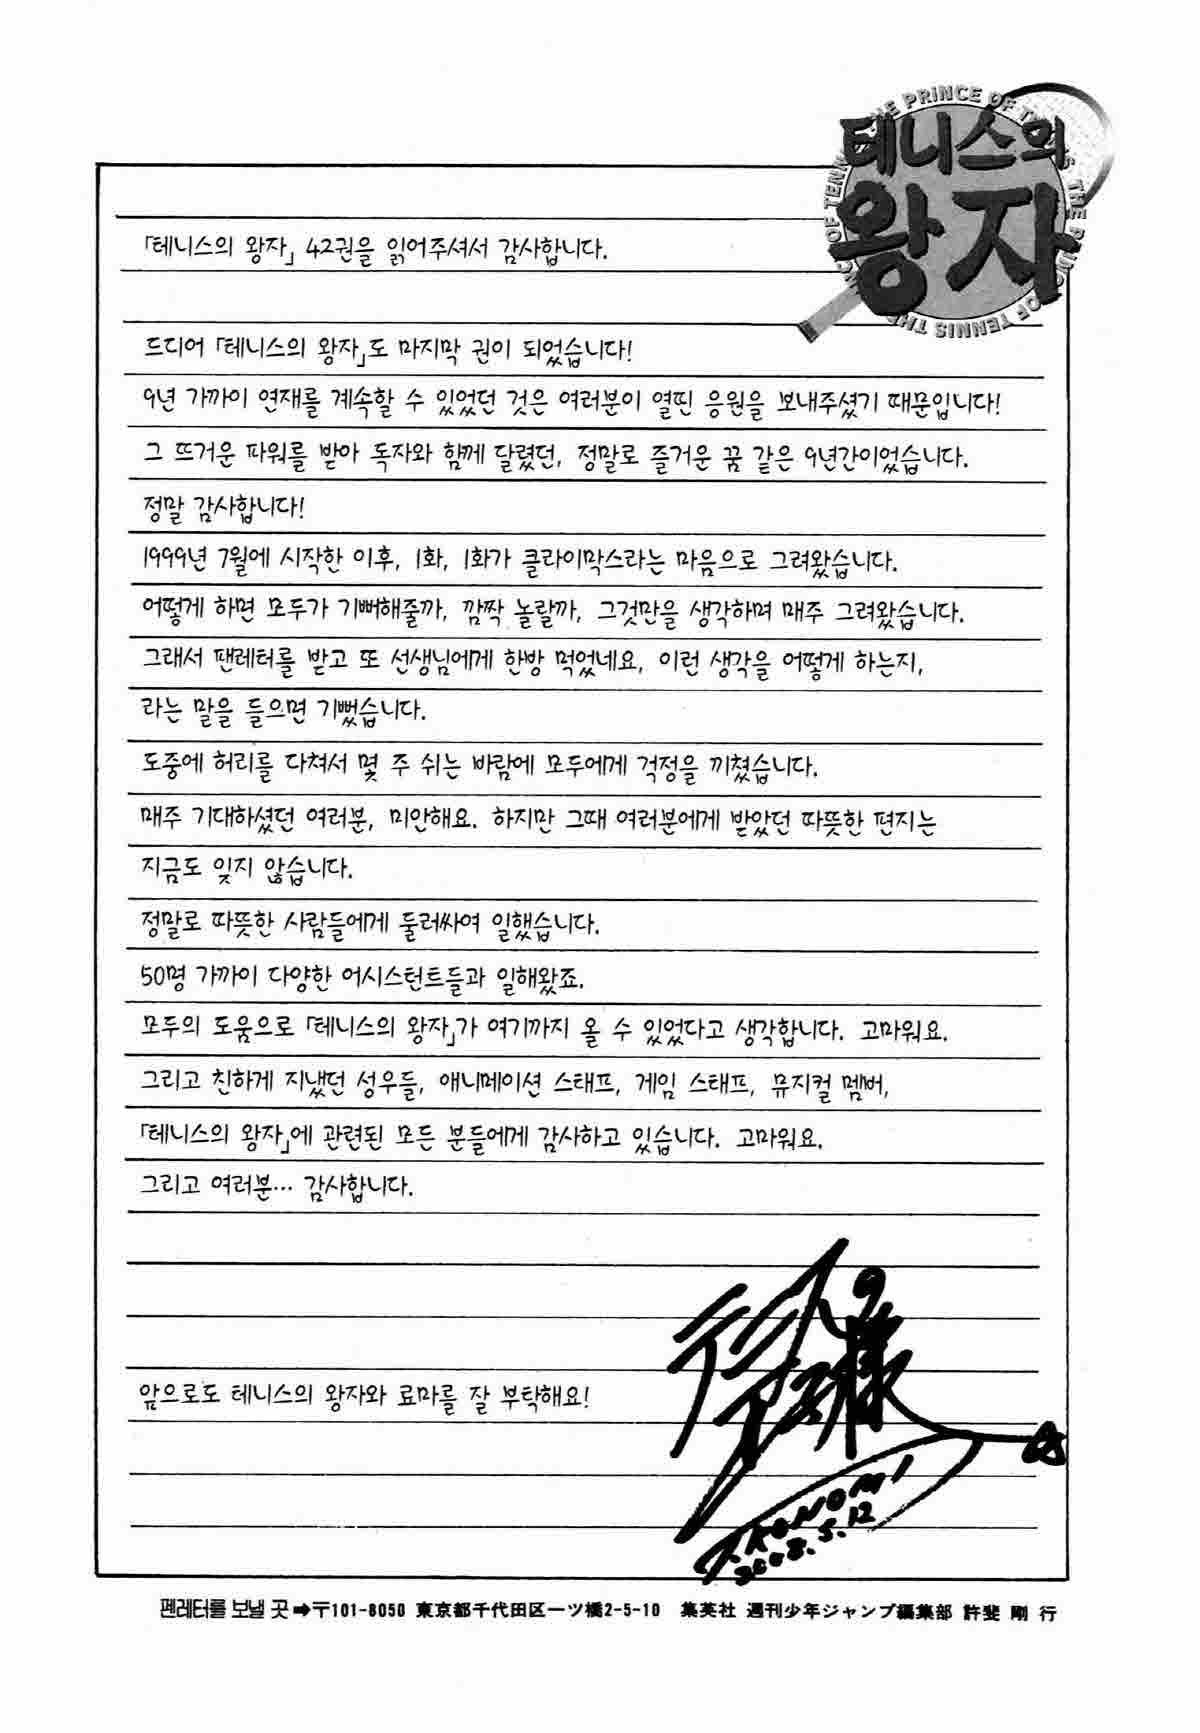 THE PRINCE OF TENNIS THE PRINCE OF TENNIS THE PRINCE OF TENNIS
테니스의
왕자
「테니스의 왕자」 42권을 읽어주셔서 감사합니다.
드디어 「테니스의 왕자」도 마지막 권이 되었습니다!
9년 가까이 연재를 계속할 수 있었던 것은 여러분이 열띤 응원을 보내주셨기 때문입니다!
그 뜨거운 파워를 받아 독자와 함께 달렸던, 정말로 즐거운 꿈 같은 9년간이었습니다.
정말 감사합니다!
1999년 7월에 시작한 이후, 1화, 1화가 클라이막스라는 마음으로 그려왔습니다.
어떻게 하면 모두가 기뻐해줄까, 깜짝 놀랄까, 그것만을 생각하며 매주 그려왔습니다.
그래서 팬레터를 받고 또 선생님에게 한방 먹었네요, 이런 생각을 어떻게 하는지,
라는 말을 들으면 기뻤습니다.
도중에 허리를 다쳐서 몇 주 쉬는 바람에 모두에게 걱정을 끼쳤습니다.
매주 기대하셨던 여러분, 미안해요. 하지만 그때 여러분에게 받았던 따뜻한 편지는
지금도 잊지 않습니다.
정말로 따뜻한 사람들에게 둘러싸여 일했습니다.
50명 가까이 다양한 어시스턴트들과 일해왔죠.
모두의 도움으로 「테니스의 왕자」가 여기까지 올 수 있었다고 생각합니다. 고마워요.
그리고 친하게 지냈던 성우들, 애니메이션 스태프, 게임 스태프, 뮤지컬 멤버,
「테니스의 왕자」에 관련된 모든 분들에게 감사하고 있습니다. 고마워요.
그리고 여러분… 감사합니다.
앞으로도 테니스의 왕자와 료마를 잘 부탁해요!
様
T.KONOMI
2008.5.12
팬레터를 보낼 곳➡〒101-8050 東京都千代田区一ツ橋2-5-10 集英社 週刊少年ジャンプ編集部 許斐 剛 行